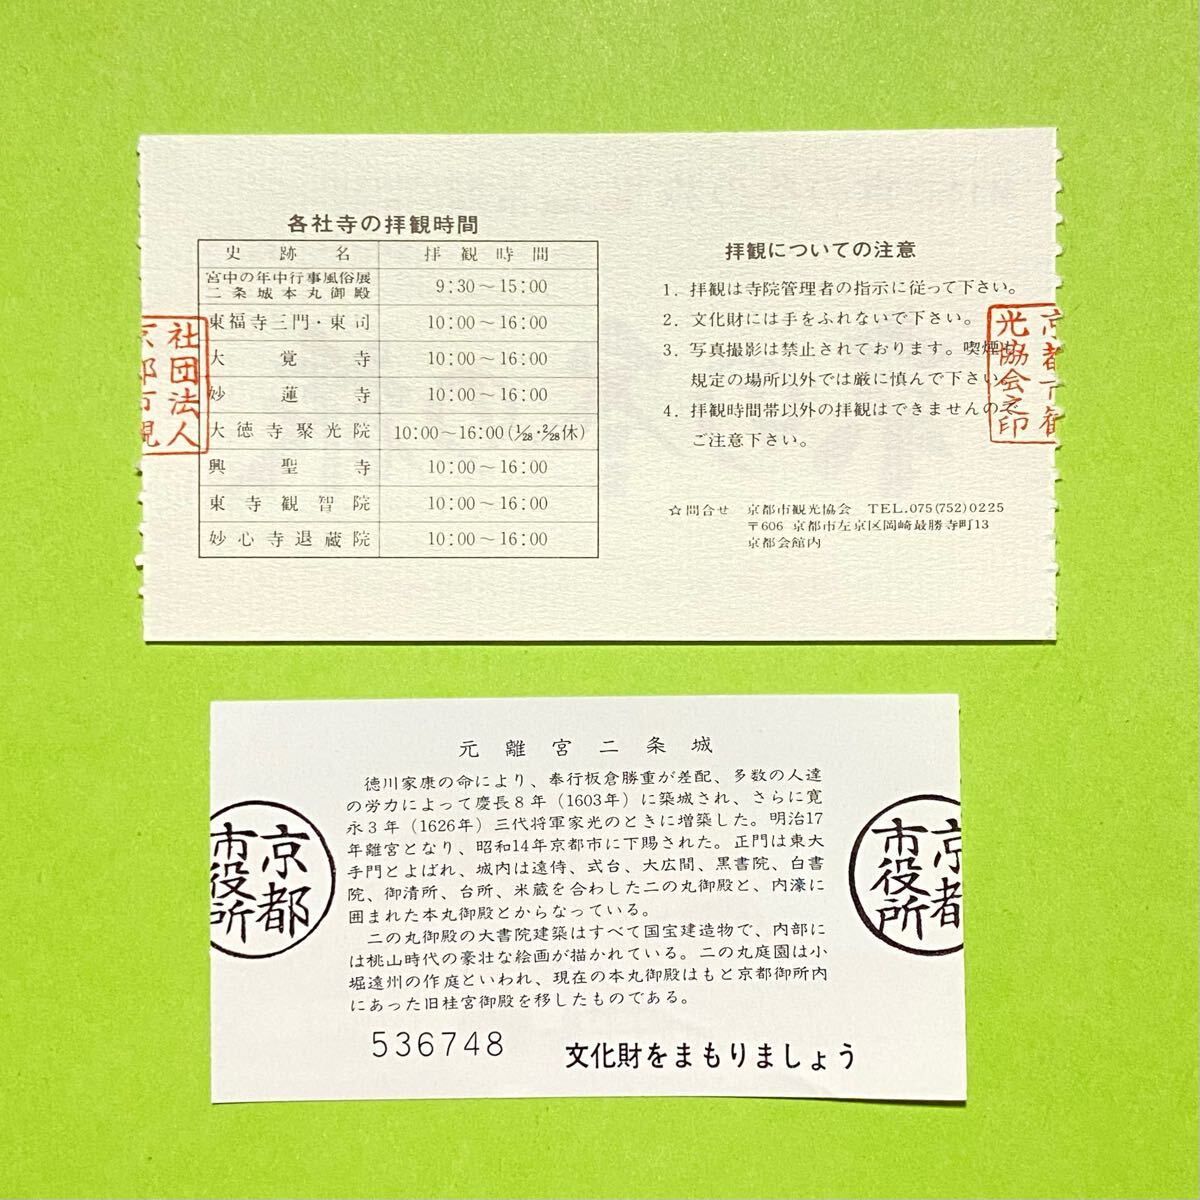 各社寺の拝観時間
史跡名 拝観時間
宮中の年中行事風俗展
二条城本丸御殿 9:30～15:00
東福寺三門・東司 10:00～16:00
大覚寺 10:00～16:00
妙蓮寺 10:00～16:00
大徳寺聚光院 10:00～16:00(1/28・2/28休)
興聖寺 10:00～16:00
東寺観智院 10:00～16:00
妙心寺退蔵院 10:00～16:00
社団法人
京都市観
拝観についての注意
1. 拝観は寺院管理者の指示に従って下さい。
2. 文化財には手をふれないで下さい。
3. 写真撮影は禁止されております。喫煙も
規定の場所以外では厳に慎んで下さい。
4. 拝観時間帯以外の拝観はできませんので
ご注意下さい。
京都市観
光協会之印
☆問合せ 京都市観光協会 TEL.075(752)0225
〒606 京都市左京区岡崎最勝寺町13
京都会館内
元離宮二条城
徳川家康の命により、奉行板倉勝重が差配、多数の人達
の労力によって慶長8年(1603年)に築城され、さらに寛
永3年(1626年)三代将軍家光のときに増築した。明治17
年離宮となり、昭和14年京都市に下賜された。正門は東大
手門とよばれ、城内は遠侍、式台、大広間、黒書院、白書
院、御清所、台所、米蔵を合わした二の丸御殿と、内濠に
囲まれた本丸御殿とからなっている。
二の丸御殿の大書院建築はすべて国宝建造物で、内部に
は桃山時代の豪壮な絵画が描かれている。二の丸庭園は小
堀遠州の作庭といわれ、現在の本丸御殿はもと京都御所内
にあった旧桂宮御殿を移したものである。
536748 文化財をまもりましょう
京都
市役所
京都
市役所